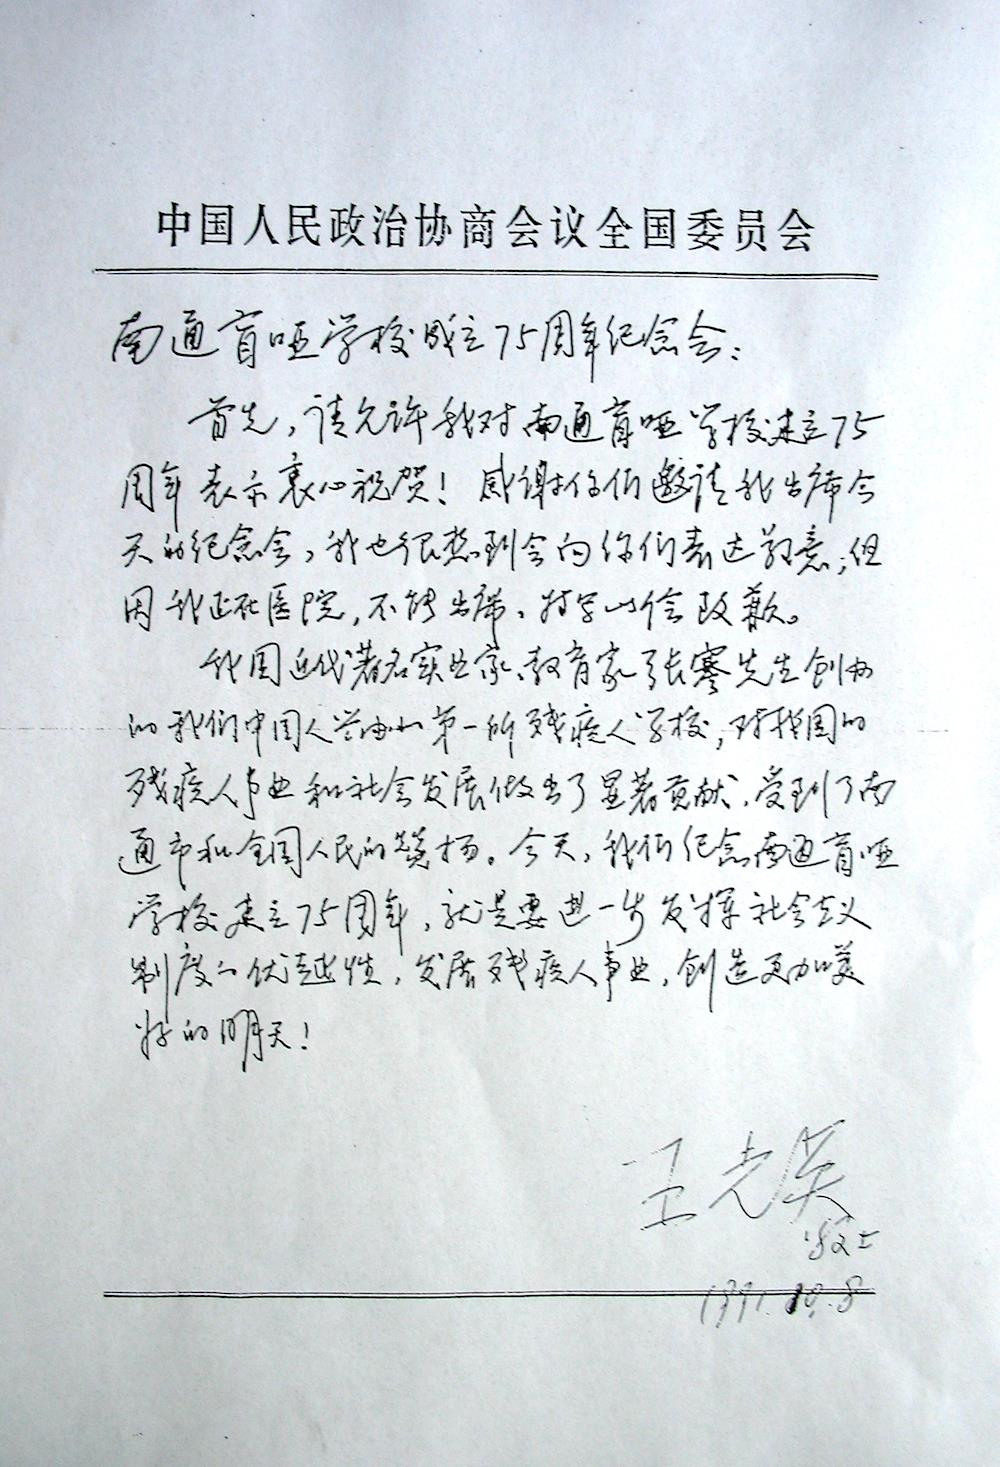 中国人民政治协商会议全国委员会
南通盲哑学校成立75周年纪念会:
首先,请允许我对南通盲哑学校建立75
周年表示衷心祝贺!感谢你们邀请我出席今
天的纪念会,我也很想到会向你们表达敬意;但
因我正在医院,不能出席,特写此信致歉。
我国近代著名实业家、教育家张謇先生创办
的我们中国人兴办的第一所残疾人学校,对我国的
残疾人事业和社会发展做出了显著贡献,受到了南
通市和全国人民的赞扬。今天,我们纪念南通盲哑
学校建立75周年,就是要进一步发挥社会主义
制度的优越性,发展残疾人事业,创造更加美
好的明天!
王光英
敬上
1991.10.8